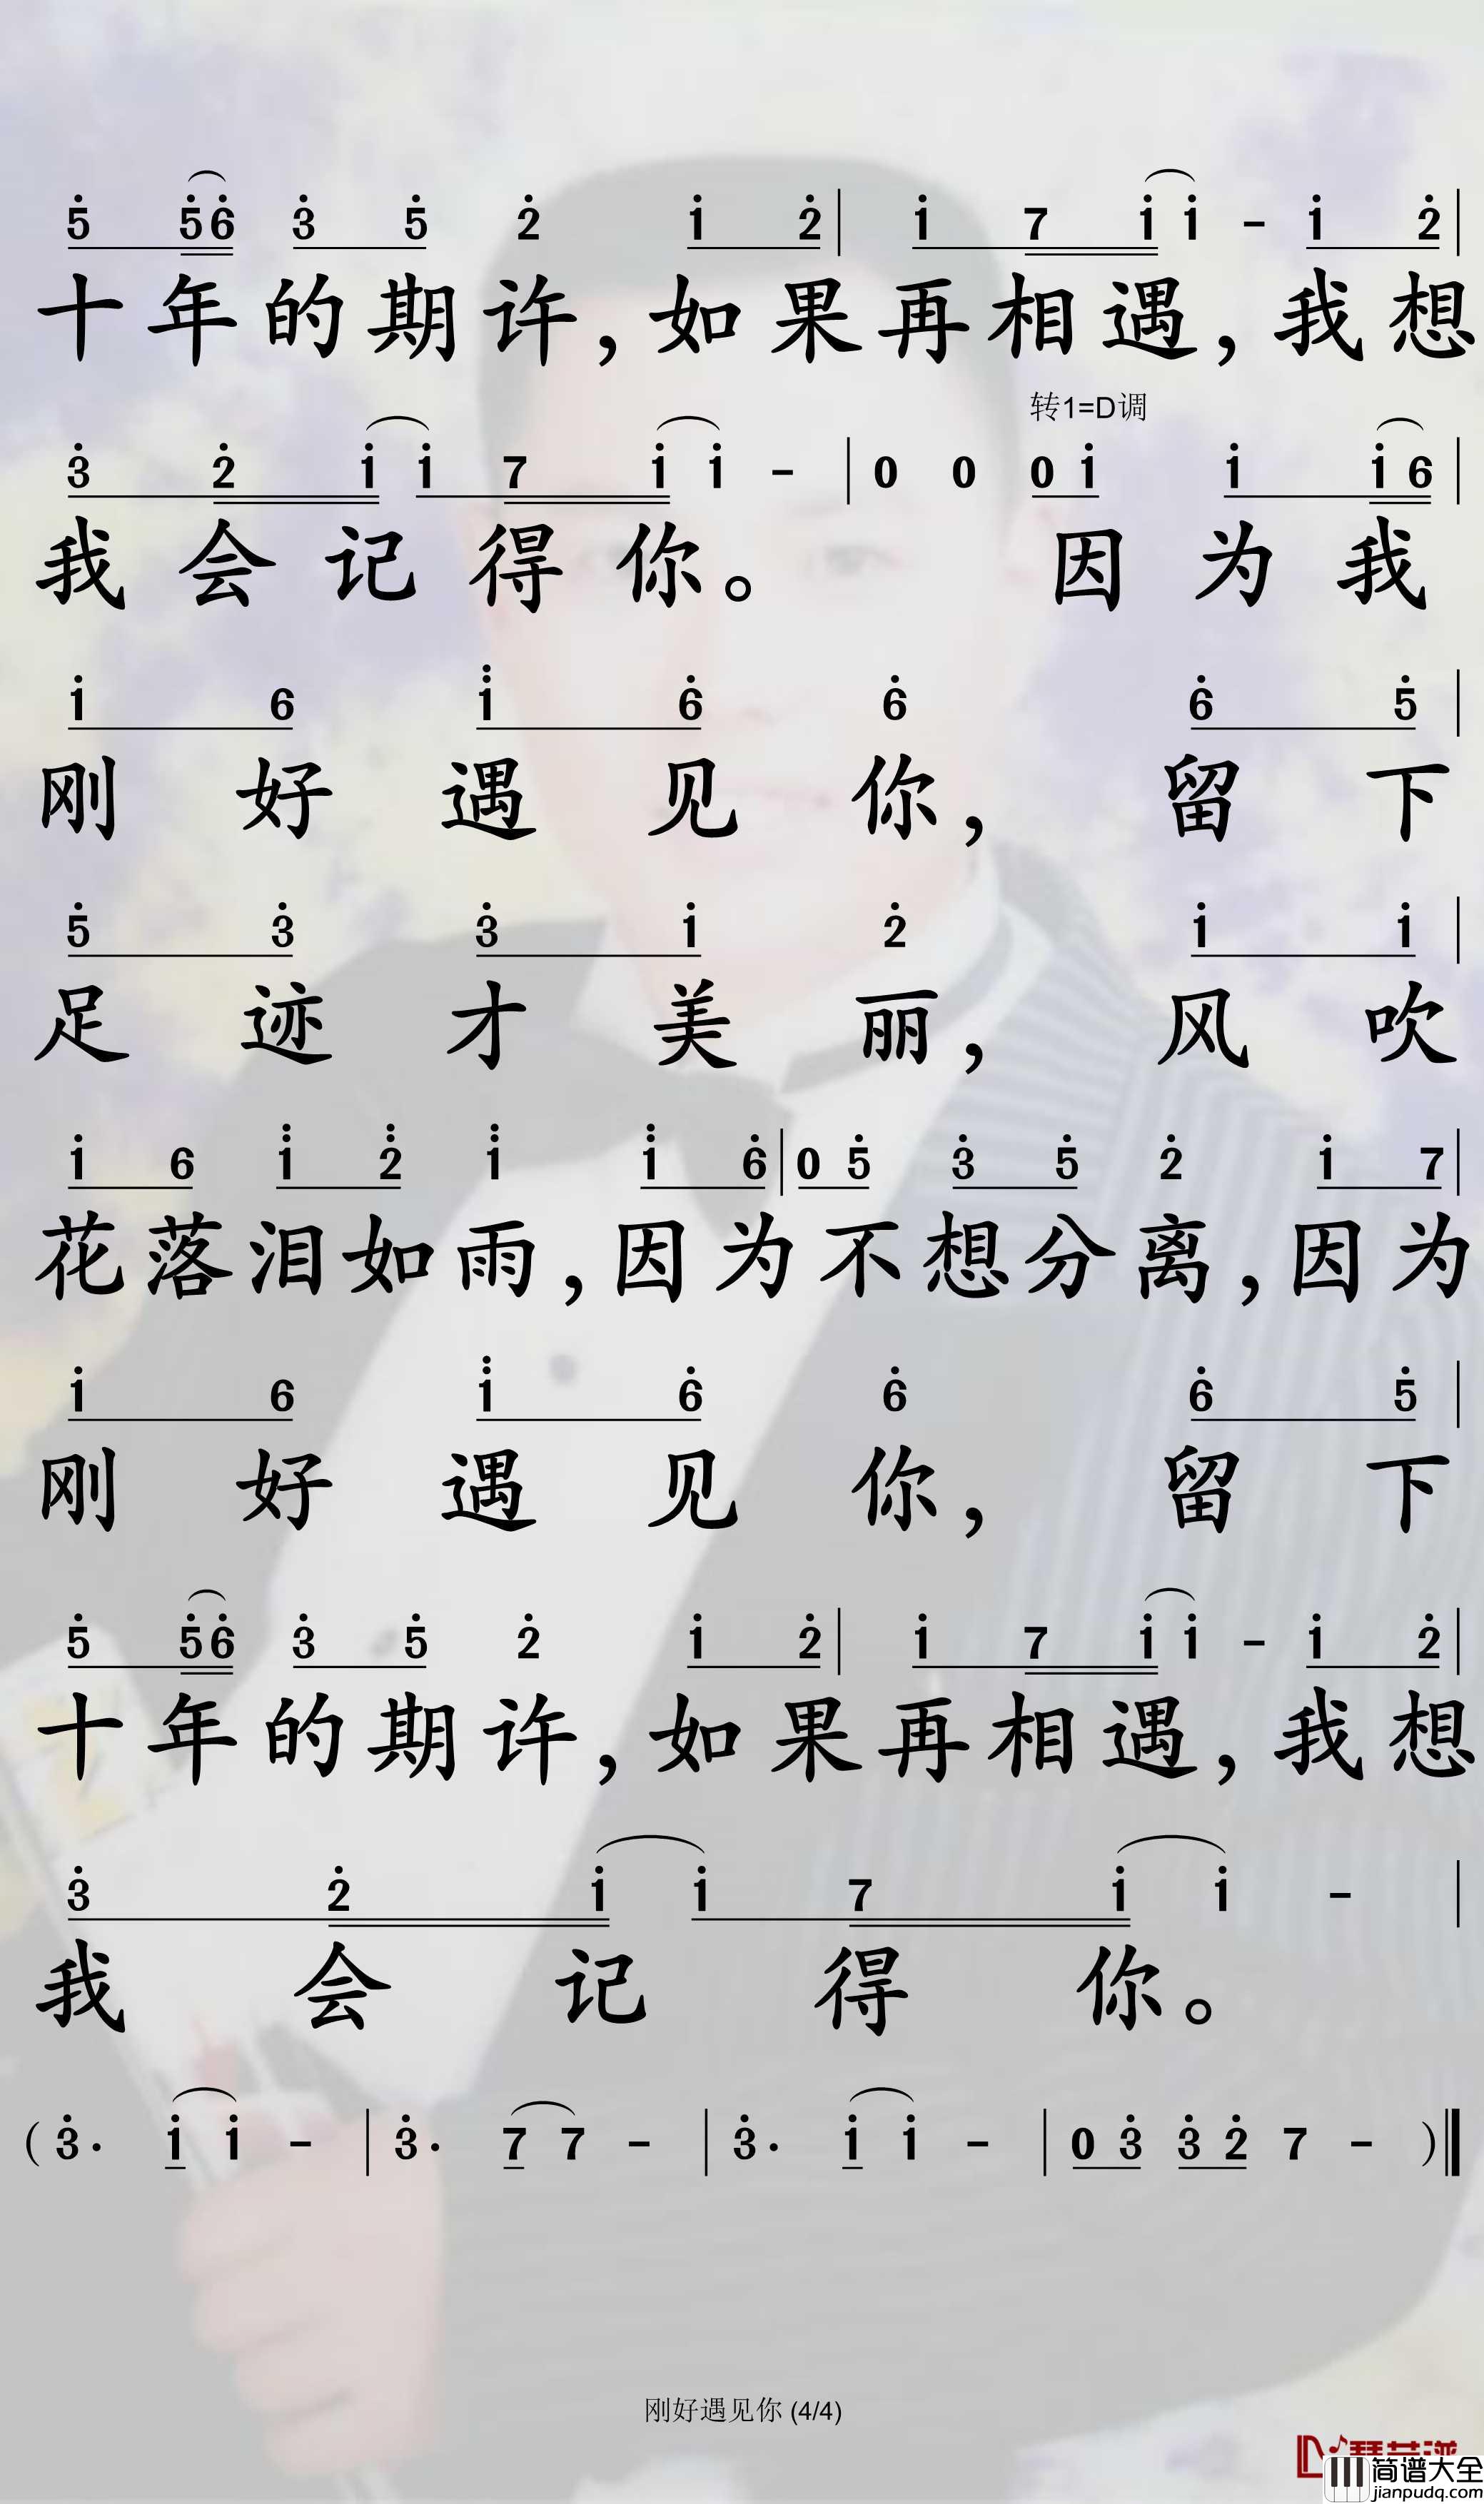 5 5 6 3 5 2 1 2 | 1 7 1 1 - 1 2 |
十年的期许，如果再相遇，我想
转1=D调
3 2 1 1 7 1 1 - | 0 0 0 1 1 1 6 |
我会记得你。因为我
1 6 1 6 6 6 5 |
刚好遇见你，留下
5 3 3 1 2 1 1 |
足迹才美丽，风吹
1 6 1 2 1 1 6 | 0 5 3 5 2 1 7 |
花落泪如雨，因为不想分离，因为
1 6 1 6 6 6 5 |
刚好遇见你，留下
5 5 6 3 5 2 1 2 | 1 7 1 1 - 1 2 |
十年的期许，如果再相遇，我想
3 2 1 1 7 1 1 - |
我会记得你。
( 3· 1 1 - | 3· 7 7 - | 3· 1 1 - | 0 3 3 2 7 - )
刚好遇见你 (4/4)
简谱大全
jianpudq.com